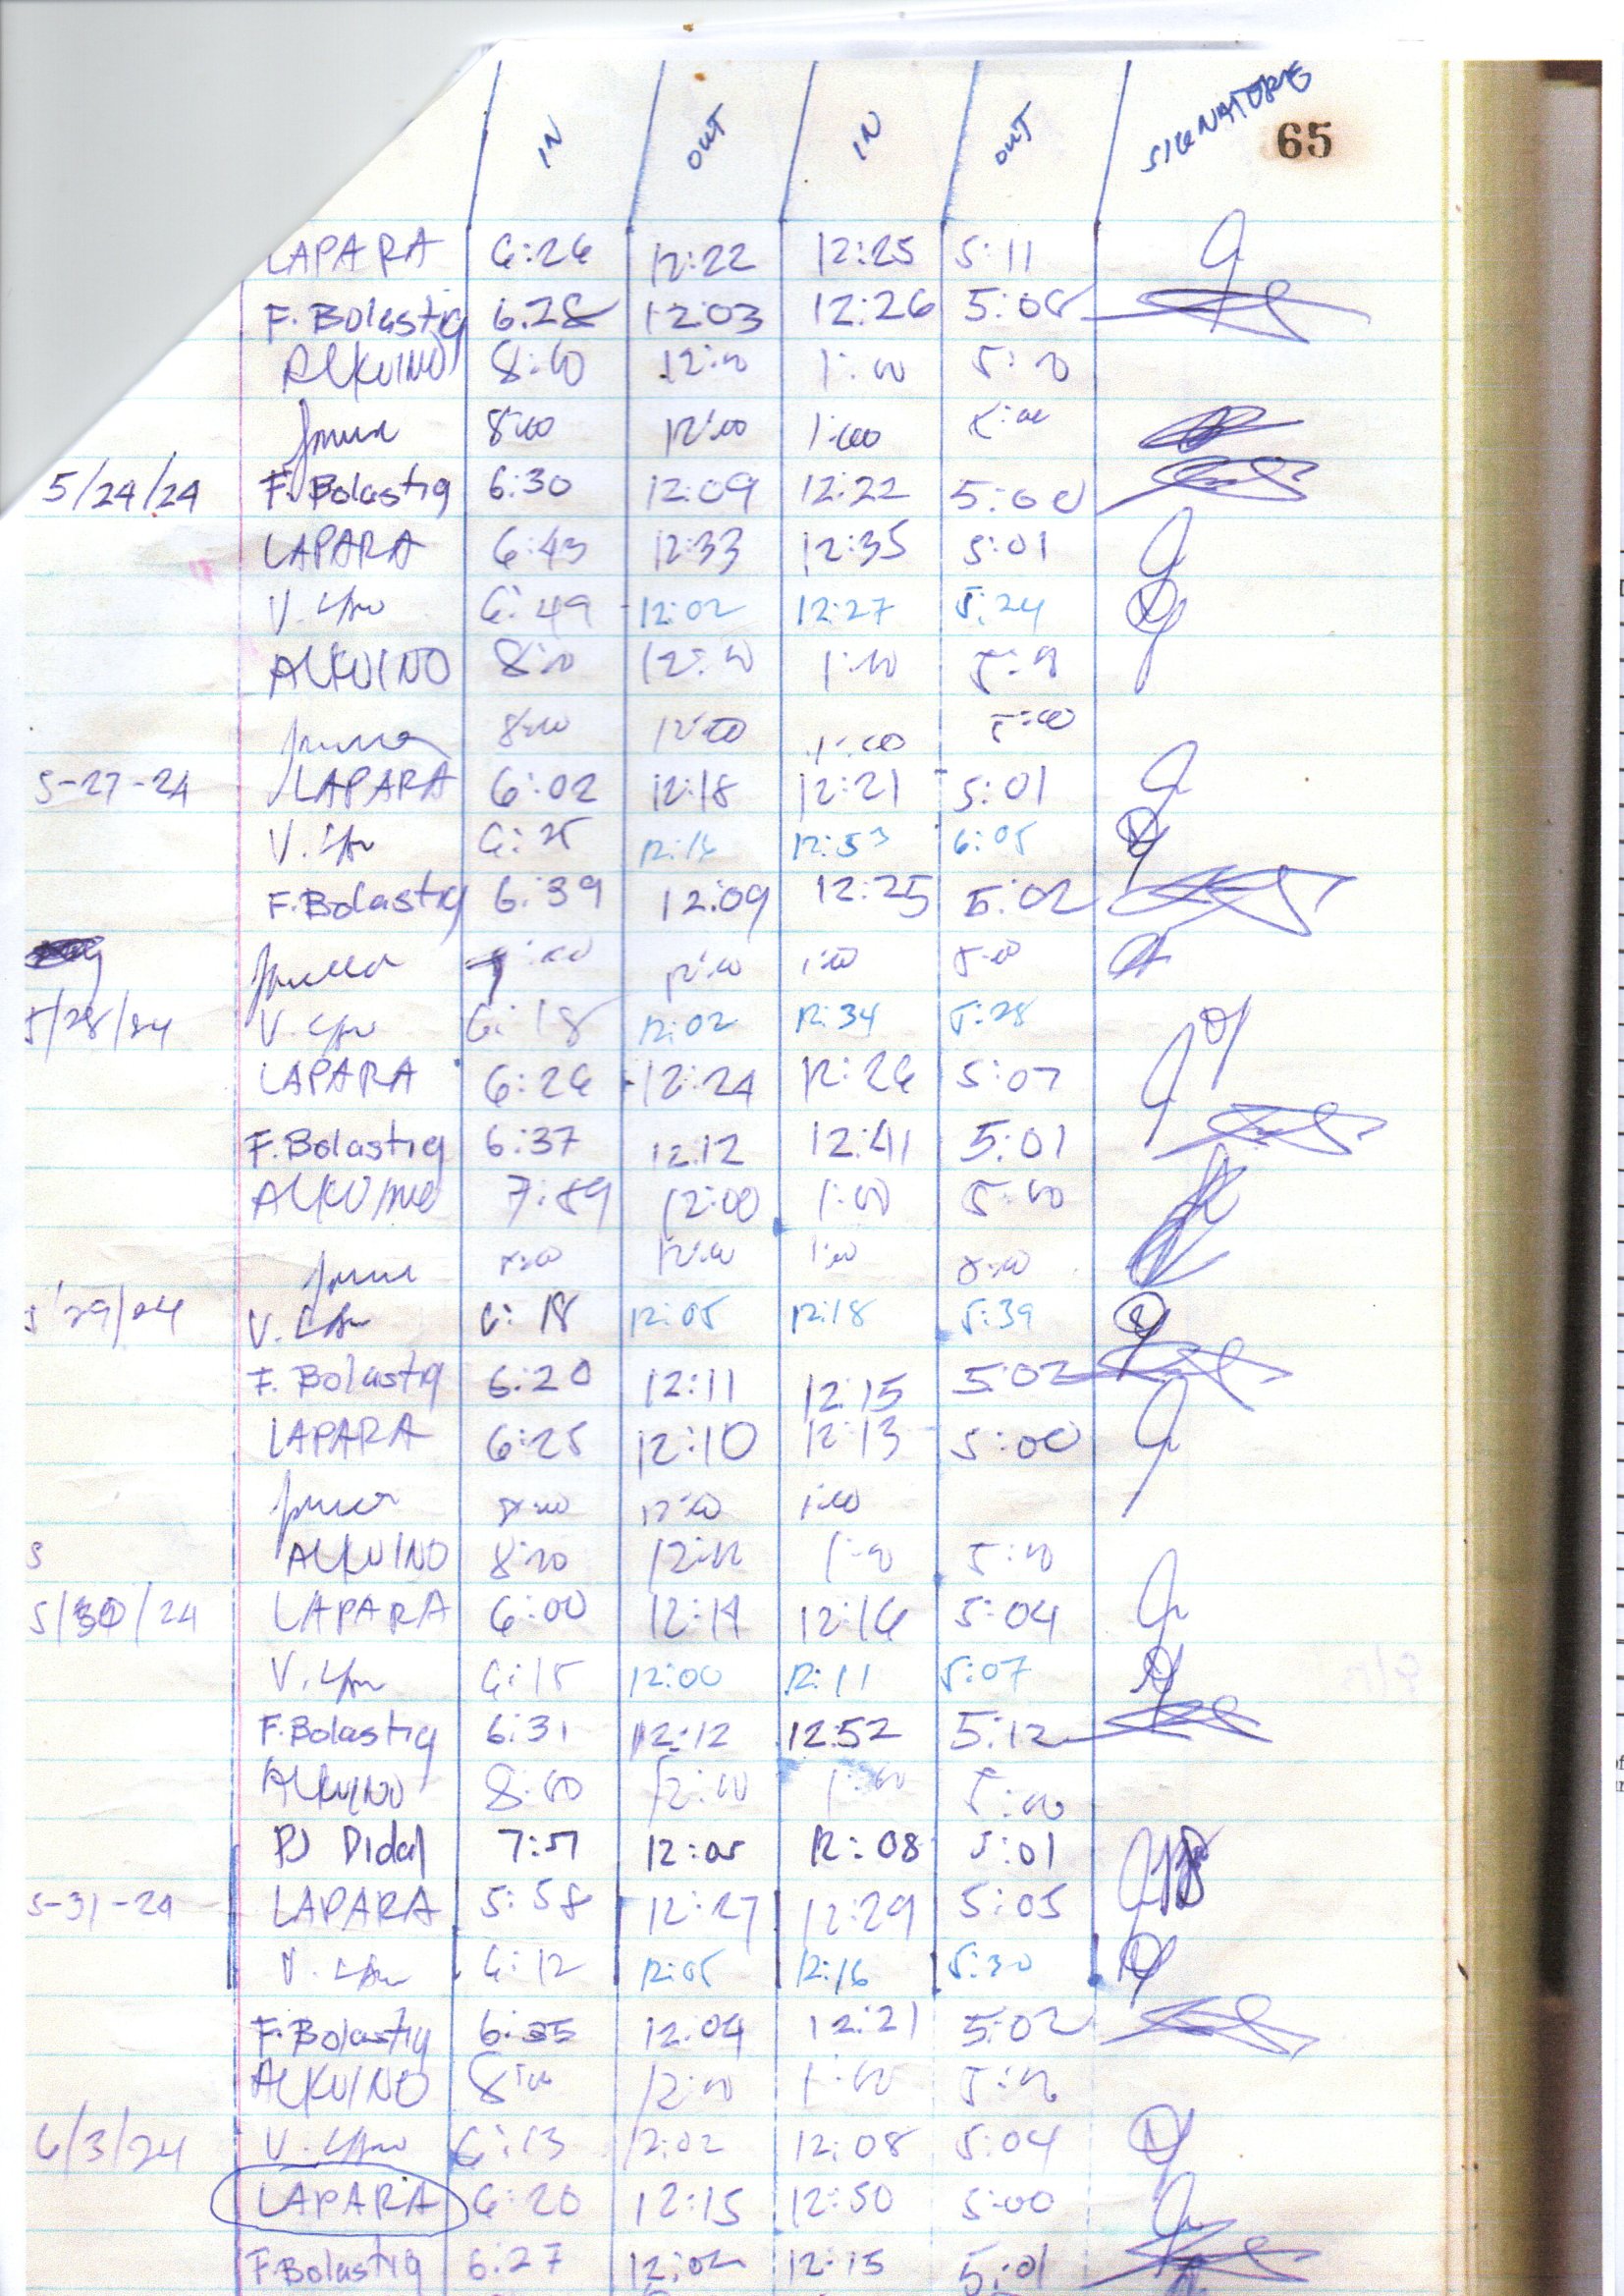 IN OUT IN OUT SIGNATURE 65
LAPARA 6:26 12:22 12:25 5:11
F. Bolastig 6:28 12:03 12:26 5:08
ALKUINO 8:00 12:00 1:00 5:00
8:00 12:00 1:00 5:00
5/24/24 F. Bolastig 6:30 12:09 12:22 5:00
LAPARA 6:43 12:33 12:35 5:01
V. 6:49 12:02 12:27 5:24
ALKUINO 8:00 12:00 1:00
8:00 12:00 1:00 5:00
5-27-24 LAPARA 6:02 12:18 12:21 5:01
V. 6:25 12:53 6:05
F. Bolastig 6:39 12:09 12:25 5:02
12:00 1:00 5:00
5/28/24 V. 6:18 12:02 12:34 5:28
LAPARA 6:26 12:24 12:26 5:07
F. Bolastig 6:37 12:12 12:41 5:01
ALKUINO 7:59 12:00 1:00 5:00
8:00 12:00 1:00 5:00
29/24 V. 6:18 12:05 12:18 5:39
F. Bolastig 6:20 12:11 12:15 5:02
LAPARA 6:25 12:10 12:13 5:00
8:00 12:00 1:00
5 ALKUINO 8:00 12:00 1:00 5:00
5/30/24 LAPARA 6:00 12:14 12:16 5:04
V. 6:15 12:00 12:11 5:07
F. Bolastig 6:31 12:12 12:52 5:12
ALKUINO 8:00 12:00 1:00 5:00
PJ Didal 7:51 12:05 12:08 5:01
5-31-24 LAPARA 5:58 12:27 12:29 5:05
V. 6:12 12:05 12:16 5:30
F. Bolastig 6:35 12:04 12:21 5:02
ALKUINO 8:00 12:00 1:00 5:00
6/3/24 V. 6:13 12:02 12:08 5:04
LAPARA 6:20 12:15 12:50 5:00
F. Bolastig 6:27 12:02 12:15 5:01